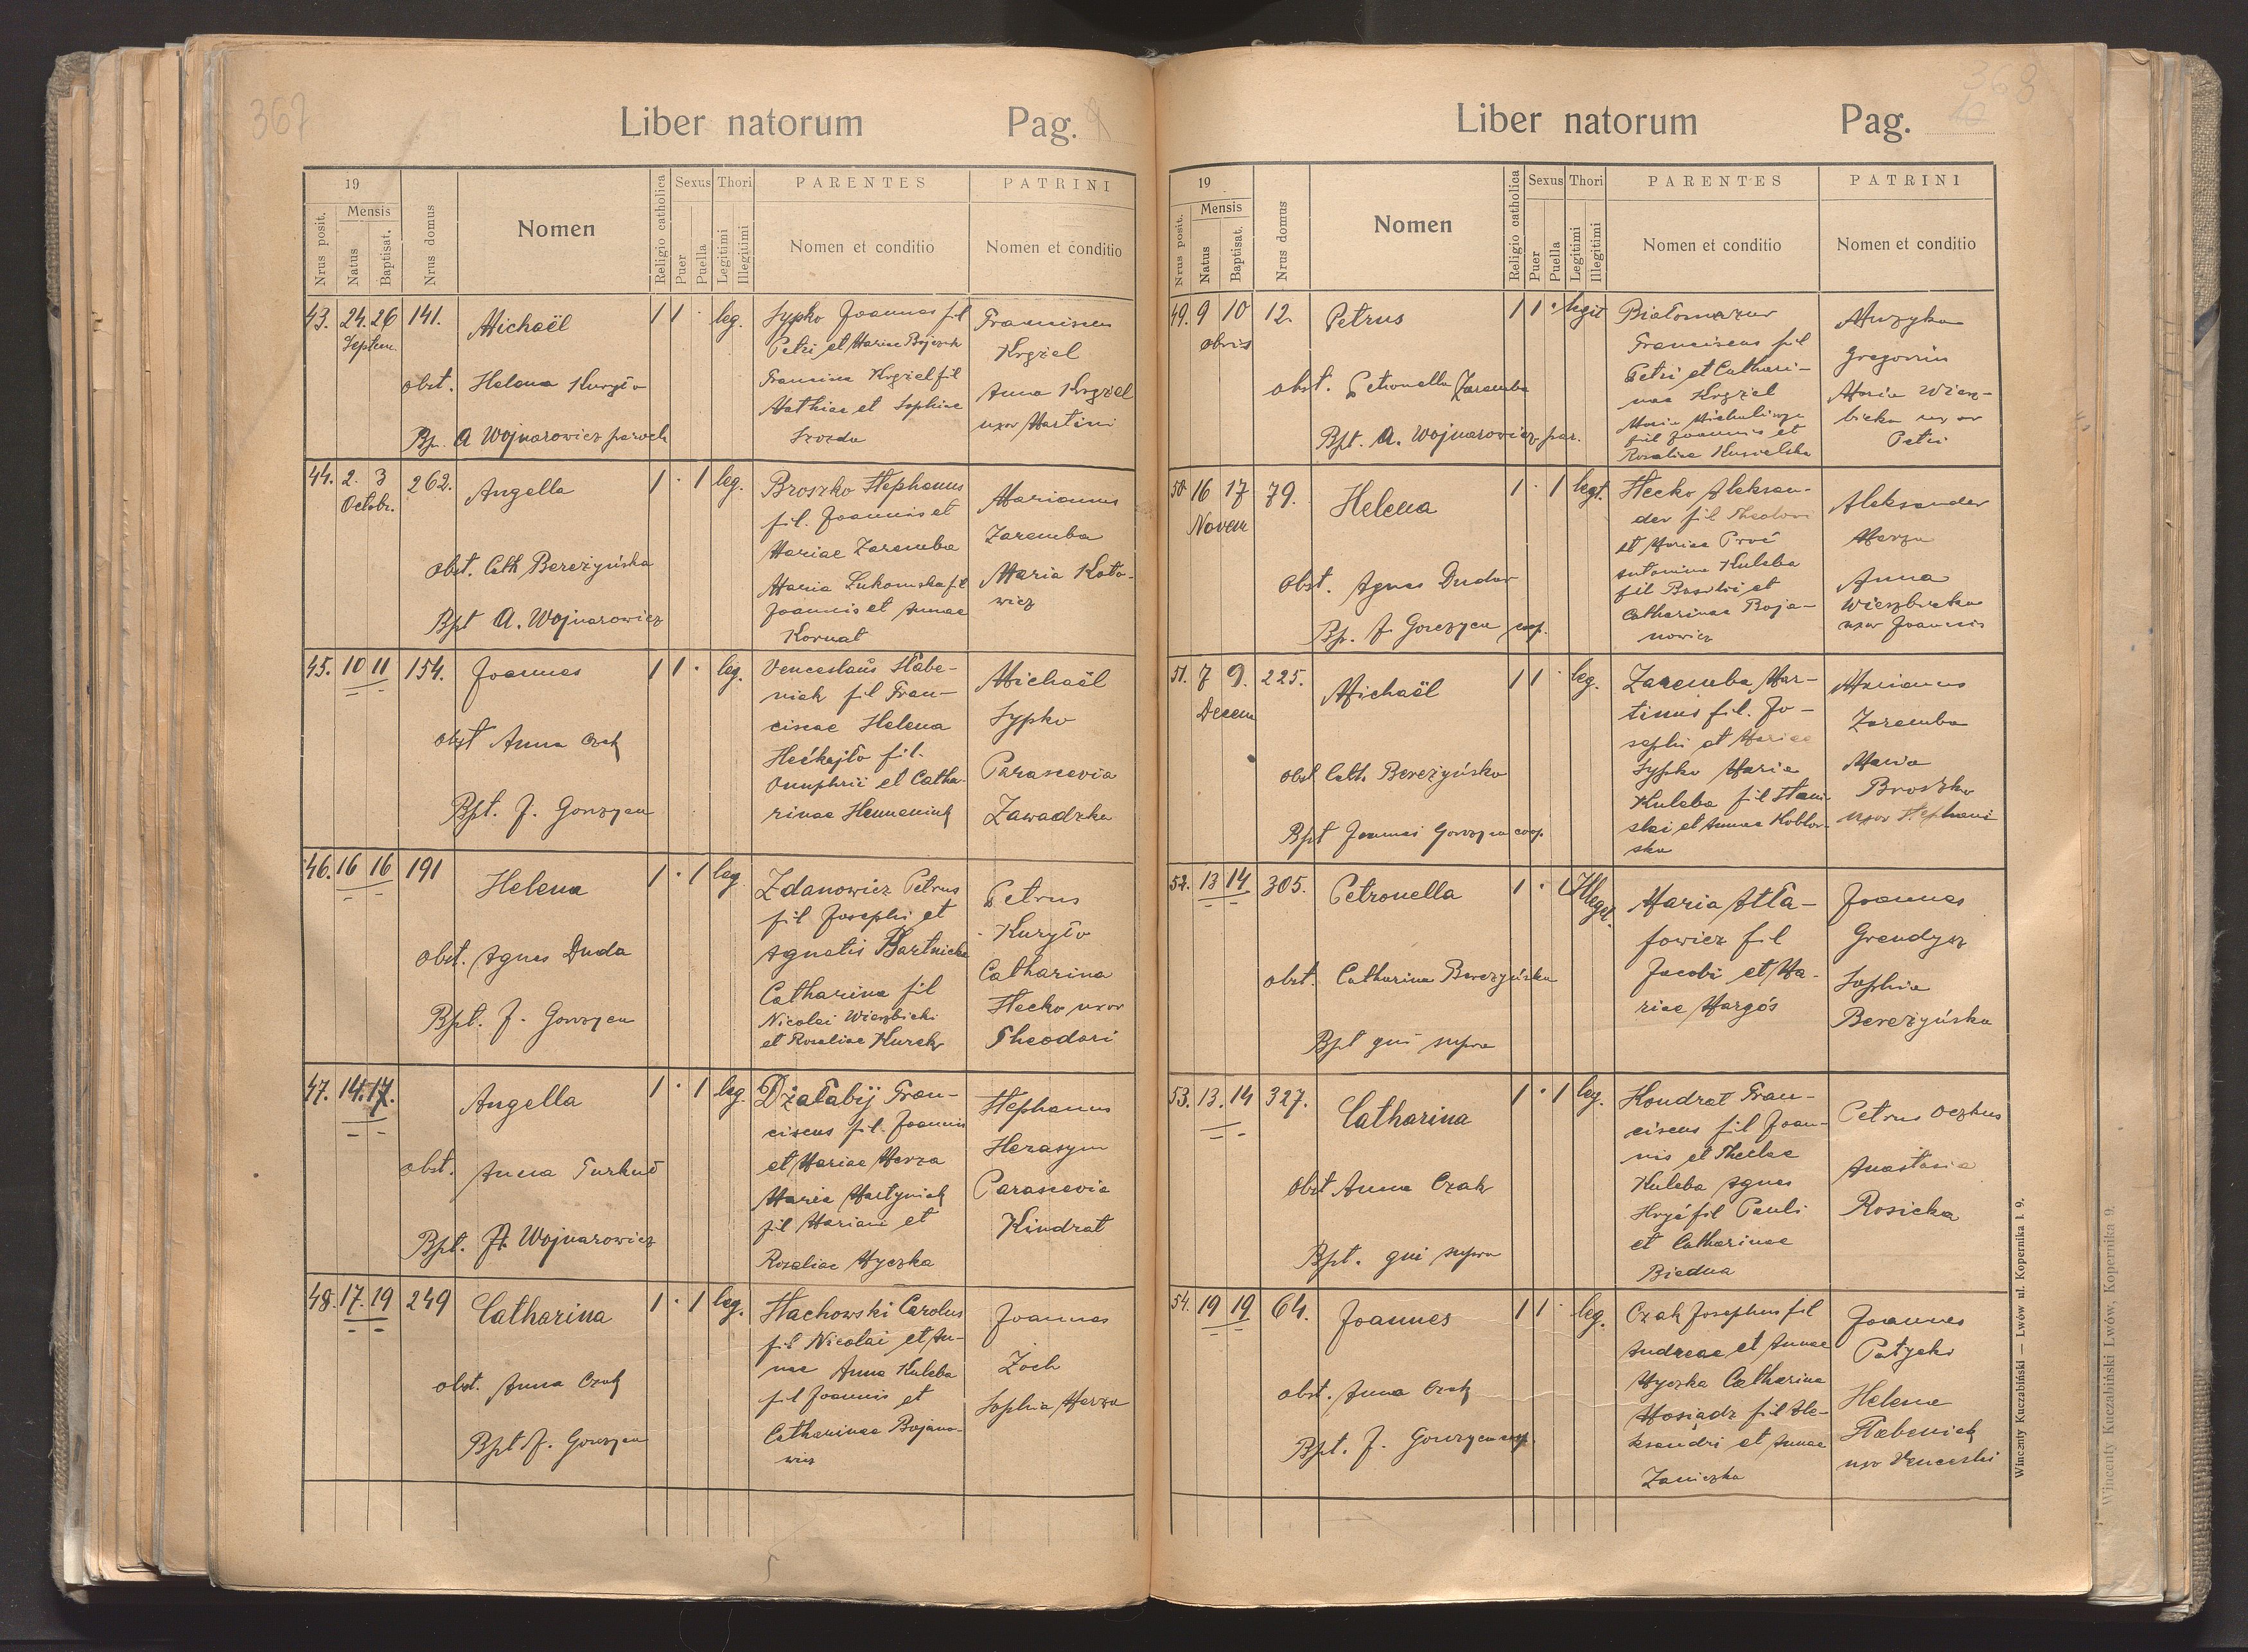 367
Liber natorum Pag. 9
19
Mensis
Nrus posit.
Natus
Baptisat.
Nrus domus
Nomen
Religio catholica
Sexus
Puer
Puella
Thori
Legitimi
Illegitimi
PARENTES
Nomen et conditio
PATRINI
Nomen et conditio
43. 24. 26 141. Michaël 1 1 · leg.
Septem
obst. Helena Kuryło
Bp. A Wojnarowicz paroch
Sypko Joannes fil
Petri et Mariae
Francisca Krązel fil
Mathiae et Sophiae
Szozda
Franciscus
Krązel
Anna Krązel
uxor Martini
44. 2. 3 262. Angella 1 · 1 leg.
Octobr.
obst. Cath Bereżyńska
Bpt A. Wojnarowicz
Broszko Stephanus
fil. Joannis et
Mariae Zaremba
Maria Łukomska fil
Joannis et Annae
Kornat
Marianus
Zaremba
Maria Koto-
wicz
45. 10 11 154. Joannes 1 1 · leg.
obst Anna Czak
Bpt. J. Gorczyca
Venceslaus Słabe-
niak fil Fran-
ciscae Helena
fil.
Onuphrii et Catha-
rinae
Michaël
Sypko
Parascevia
Zawadzka
46. 16 16 191 Helena 1 · 1 leg
obst. Agnes Duda
Bpt. J. Gorczyca
Zdanowicz Petrus
fil Josephi et
Agnetis Bartnicka
Catharina fil
Nicolai Wierzbicki
et Rosaliae Kurek
Petrus
Kuryło
Catharina
Stecko uxor
Theodori
47. 14. 17. Angella 1 · 1 leg.
obst. Anna
Bpt. A. Wojnarowicz
Działabij Fran-
ciscus fil. Joannis
et Mariae Marza
Maria Martyniak
fil Mariani et
Rozaliae Hyczka
Stephanus
Herasym
Parascevia
Kindrat
48. 17. 19 249 Catharina 1 · 1 leg.
obst. Anna Czak
Bpt J. Gorczyca
Stachowski Carolus
fil Nicolai et An-
nae Anna Kuleba
fil Joannis et
Catharinae Bojano-
wicz
Joannes
Zoch
Sophia Marza
368
Liber natorum Pag. 10
19
Mensis
Nrus posit.
Natus
Baptisat.
Nrus domus
Nomen
Religio catholica
Sexus
Puer
Puella
Thori
Legitimi
Illegitimi
PARENTES
Nomen et conditio
PATRINI
Nomen et conditio
49. 9 10 12. Petrus 1 1 · legit
obris
obst. Petronella Zaremba
Bpt. A. Wojnarowicz par.
Białomazur
Franciscus fil
Petri et Cathari-
nae Krązel
Maria
fil Joannis et
Rosaliae Kusielska
Muzyka
Gregorius
Maria Wierz-
bicka uxor
Petri
50. 16 17 79. Helena 1 · 1 legt.
Novem
Obst. Agnes Dudar
Bp. J. Gorczyca coop.
Stecko Aleksan-
der fil Theodori
et Mariae Proć
Antonina Kuleba
fil Basilii et
Catharinae Boja-
nowicz
Aleksander
Marza
Anna
Wierzbicka
uxor Joannis
51. 7 9. 225. Michaël 1 1 · leg.
Decem
obst Cath. Bereżyńska
Bpt Joannes Gorczyca coop.
Zaremba Mar-
tinus fil. Jo-
sephi et Mariae
Sypko Maria
Kuleba fil Stani-
slai et Annae Kozłow-
ska
Marianus
Zaremba
Maria
Broszko
uxor Stephani
52. 13 14 305. Petronella 1 · 1 Illeget.
obst. Catharina Bereżyńska
Bpt qui supra
Maria Atta-
fowicz fil
Jacobi et Ma-
riae Margós
Joannes
Grendysz
Sophia
Bereżyńska
53. 13. 14 327. Catharina 1 · 1 leg.
obst Anna Czak
Bpt. qui supra
Kondrat Fran-
ciscus fil Joan-
nis et Theclae
Kuleba Agnes
fil Pauli
et Catharinae
Biedna
Petrus
Anastasia
Rosicka
54. 19 19 64. Joannes 1 1 · leg.
obst. Anna Czak
Bpt. J. Gorczyca coop.
Czak Josephus fil
Andreae et Annae
Hyczka Catharina
Mosiądz fil Ale-
ksandri et Annae
Zaniczka
Joannes
Patycki
Helena
Słabeniak
uxor Venceslai
Winczenty Kuczabiński — Lwów ul. Kopernika l. 9.
Wincenty Kuczabiński Lwów, Kopernika 9.